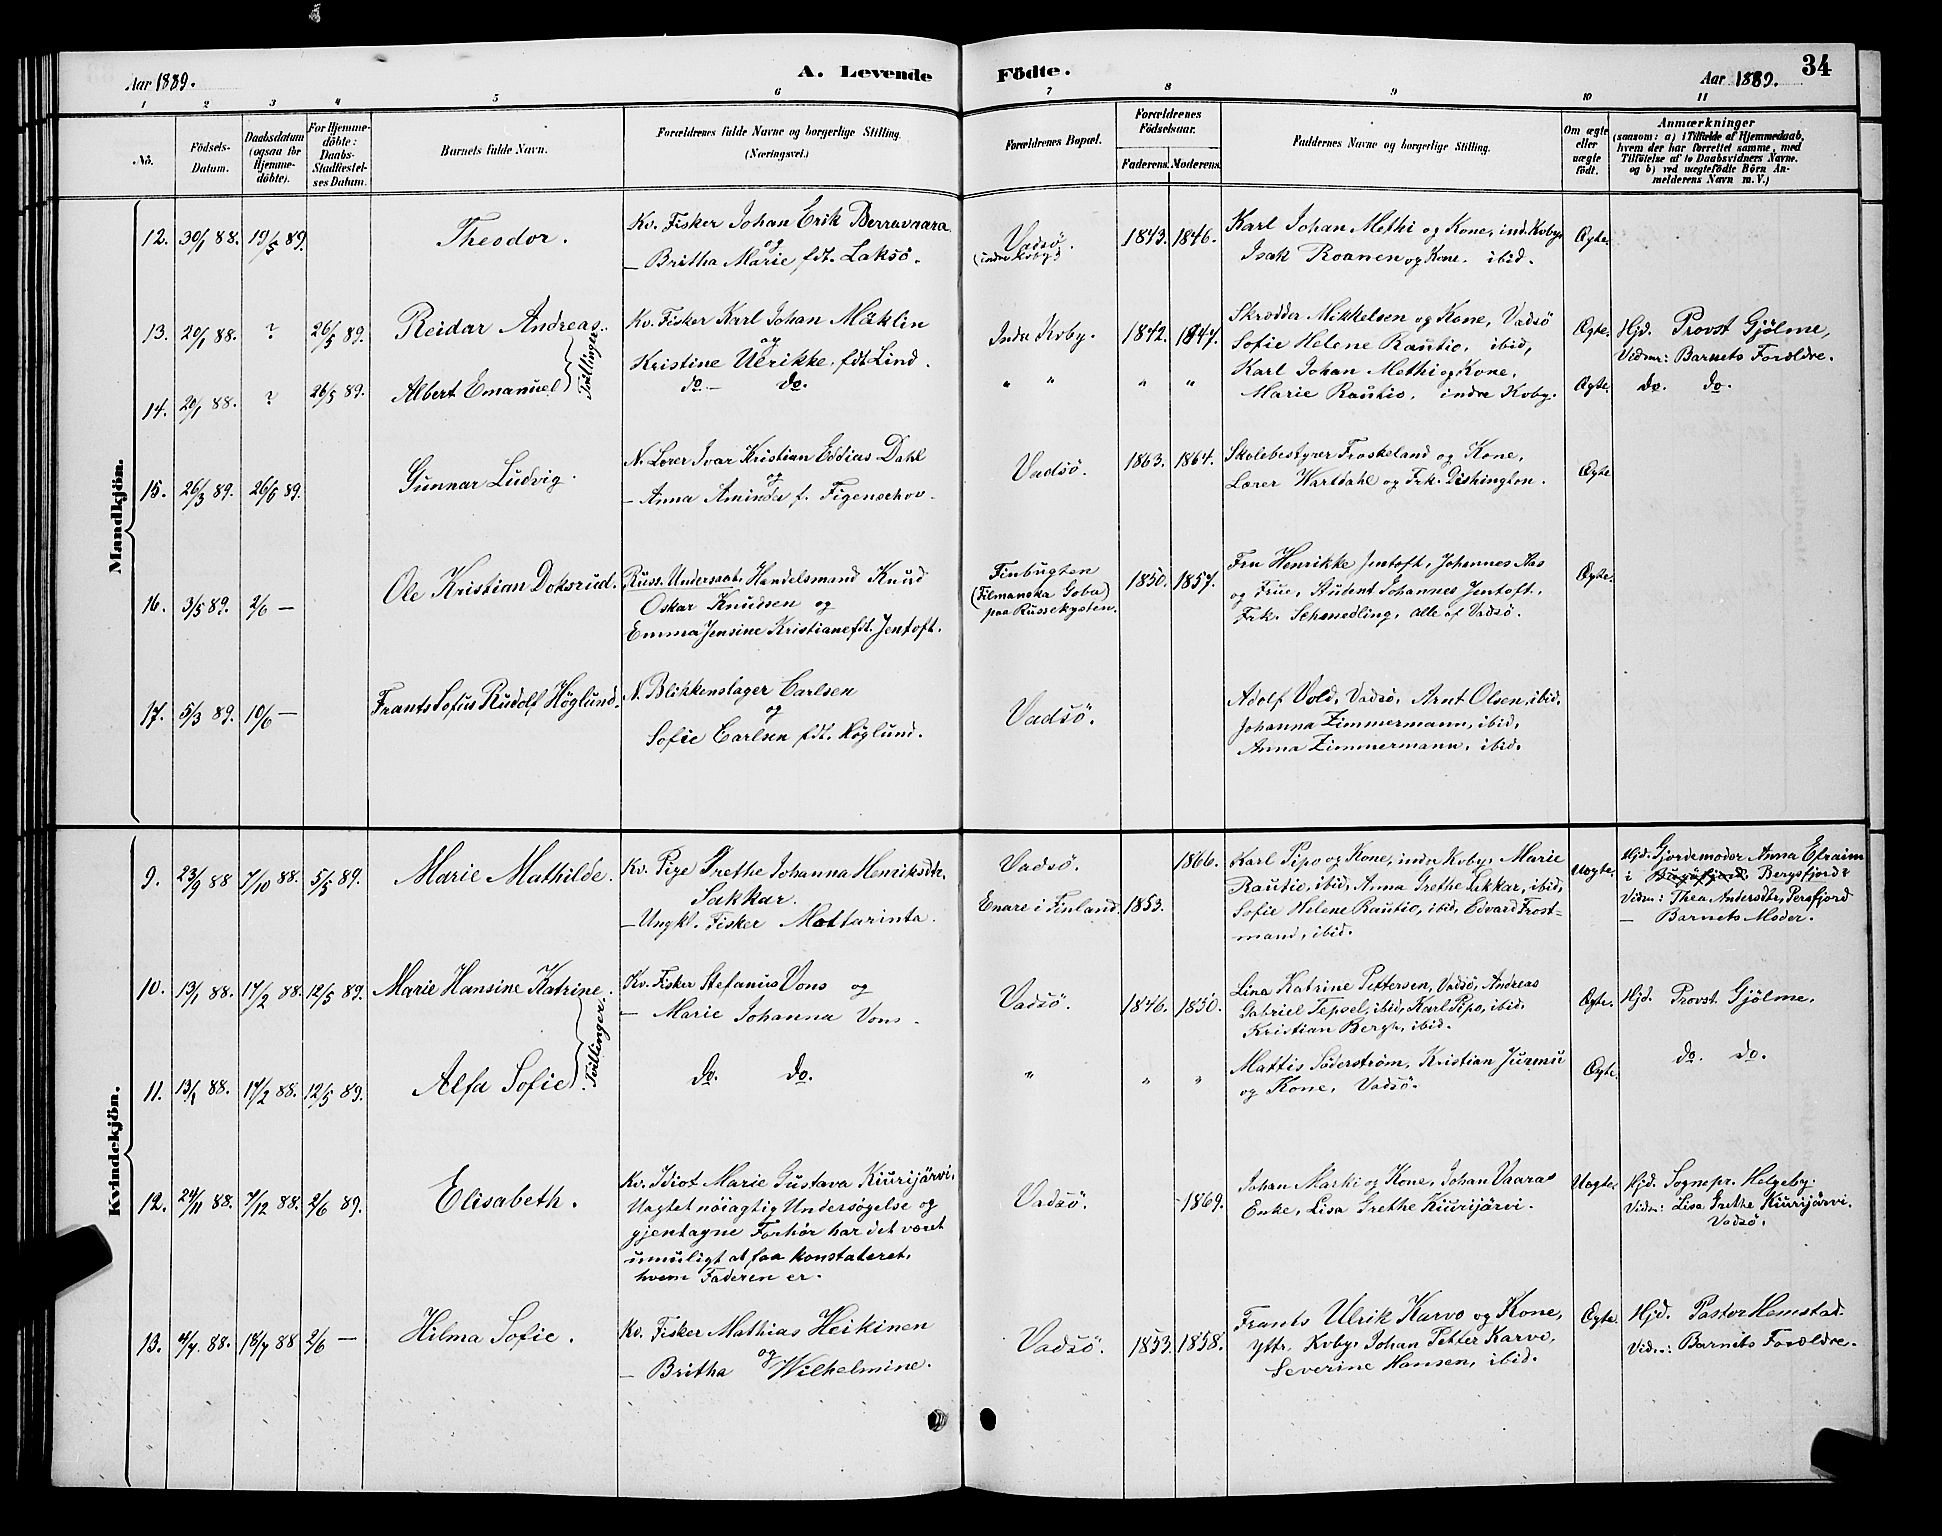 Aar 1889.
A. Levende Födte.
Aar 1889.
34
1 2 3 4 5 6 7 8 9 10 11
No.
Födsels-Datum.
Daabsdatum (ogsaa for Hjemmedöbte).
For Hjemmedöbte: Daabs-Stadfæstelses Datum.
Barnets fulde Navn.
Forældrenes fulde Navne og borgerlige Stilling.
(Næringsvei.)
Forældrenes Bopæl.
Forældrenes Födselsaar.
Faderens. Moderens.
Faddernes Navne og borgerlige Stilling.
Om ægte eller uægte födt.
Anmærkninger
(saasom: a) i Tilfælde af Hjemmedaab, hvem der har forrettet samme, med Tilföielse af to Daabsvidners Navne. og b) ved uægtefödte Börn Anmelderens Navn m. V.)
Mandkjön.
12. 30/1 88. 19/5 89. Theodor. Kv. Fisker Johan Erik Berravaara
og
— Britha Marie fdt. Laksö.
Vadsö. (indre Kvby) 1843. 1846. Karl Johan Methi og Kone, ind. Kvby.
Isak Roanen og Kone. ibid.
Ægte.
13. 20/1 88. ? 26/5 89. Reidar Andreas. Kv. Fisker Karl Johan Mäklin
og
Kristine Ulrikke, fdt Lind.
Indre Kvby. 1842. 1847. Skrædder Mikkelsen og Kone, Vadsö
Sofie Helene Rautio, ibid,
Ægte. Hjd. Provst Gjölme,
Vidner: Barnets Forældre.
Tvillinger
14. 20/1 88. ? 26/5 89. Albert Emanuel do — do.
" " " " Karl Johan Methi og Kone,
Marie Rautio, indre Kvby.
Ægte. do. do.
15. 26/3 89. 26/5 89. Gunnar Ludvig. N. Lærer Ivar Kristian Eddias Dahl
og
— Anna Aminda f. Figenschov.
Vadsö. 1863. 1864. Skolebestyrer Froskeland og Kone,
Lærer Wartdahl og Frk. Dishington.
Ægte
16. 3/5 89. 2/6 — Ole Kristian Doksrud. Russ. Undersaat. Handelsmand Knud
Oskar Knudsen og
Emma Jensine Kristiane fdt. Jentoft.
Finbugten
(Filmanska Goba)
paa Russekysten.
1850. 1857. Fru Henrikke Jentoft, Johannes Aas
og Frue, Student Johannes Jentoft,
Frk. Schmedling, alle af Vadsö.
Ægte.
17. 5/3 89. 10/6 — Frants Sofus Rudolf Höglund. N. Blikkenslager Carlsen
og
Sofie Carlsen fdt. Höglund.
Vadsö. Adolf Vold, Vadsö, Arnt Olsen, ibid,
Johanna Zimmermann, ibid,
Anna Zimmermann, ibid.
Kvindekjön.
9. 23/9 88 7/10 88. 5/5 89. Marie Mathilde. Kv. Pige Grethe Johanna Henriksdtr.
Sakkar.
— Ungkl. Fisker Mattarinta.
Vadsö. 1866.
Enare i Finland. 1853.
Karl Pipo og Kone, indre Kvby, Marie
Rautio, ibid, Anna Grethe Sikkar, ibid,
Sofie Helene Rautio, ibid, Edvard Frost-
mand, ibid.
Uægte. Hjd. Gjordemoder Anna Efraim
i Bergsfjord.
Vidn: Thea Andersdtr, Persfjord
— Barnets Moder.
10. 13/1 88. 17/2 88. 12/5 89. Marie Hansine Katrine. Kv. Fisker Stefanus Vons og
— Marie Johanna Vons.
Vadsö. 1846. 1850. Lina Katrine Pettersen, Vadsö, Andreas
Gabriel Tepsel, ibid, Karl Pipo, ibid,
Kristian Bergh, ibid.
Ægte. Hjd. Provst Gjölme.
Tvillinger.
11. 13/1 88. 17/2 88. 12/5 89. Alfa Sofie do. do.
" " " Mattis Söderström, Kristian Jurmu
og Kone, Vadsö.
Ægte. do. do.
12. 24/11 88. 7/12 88. 2/6 89. Elisabeth. Kv. Idiot Marie Gustava Kiurijärvi.
Uagtet nöiagtig Undersögelse og
gjentagne Forhör har det været
umuligt at faa konstateret,
hvem Faderen er.
Vadsö. 1869. Johan Marki og Kone, Johan Vaaras
Enke, Lisa Grethe Kiurijärvi.
Uægte Hjd. Sognepr. Helgeby.
Vidn: Lisa Grethe Kiurijärvi.
Vadsö.
13. 4/7. 88. 18/7 88 2/6 — Hilma Sofie. Kv. Fisker Mathias Heikinen
og
— Britha Wilhelmine.
Vadsö. 1853. 1858. Frants Ulrik Karvo og Kone,
yttr. Kvby, Johan Petter Karvo,
Severine Hansen, ibid.
Ægte. Hjd. Pastor Hemstad.
Vidn.: Barnets Forældre.